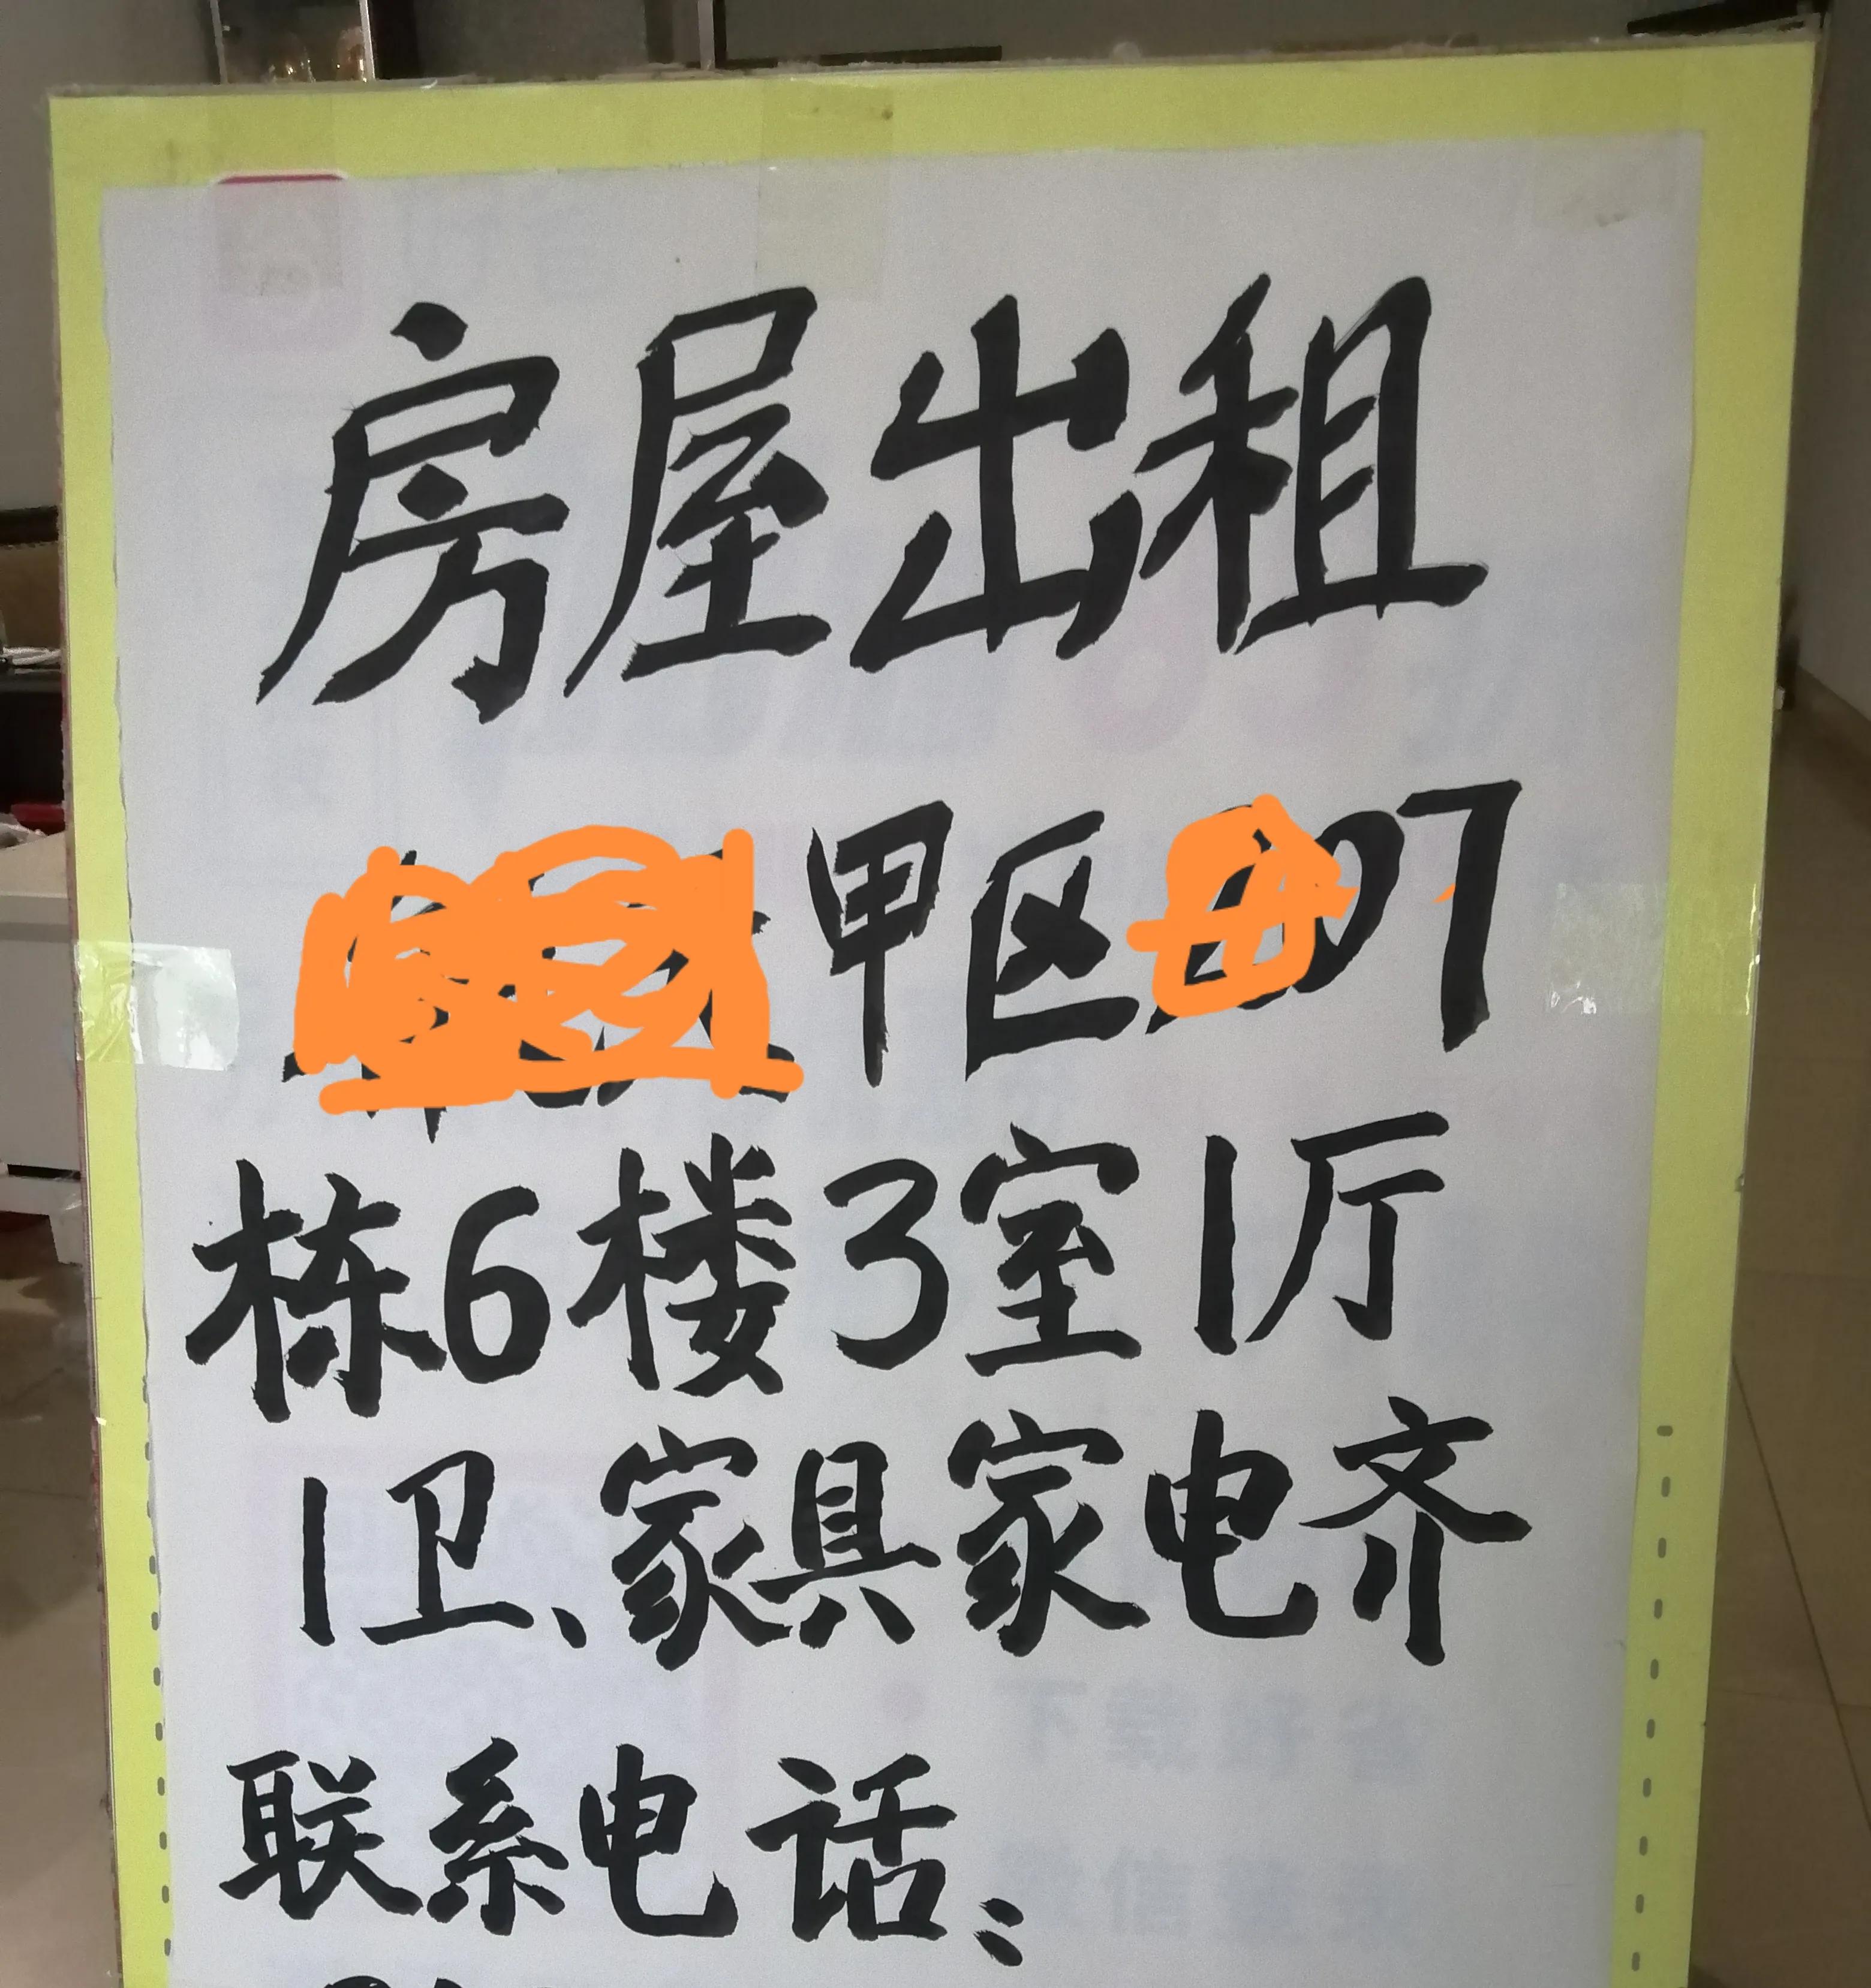 房屋出租
甲区 07
栋6楼3室1厅
1卫、家具家电齐
联系电话: